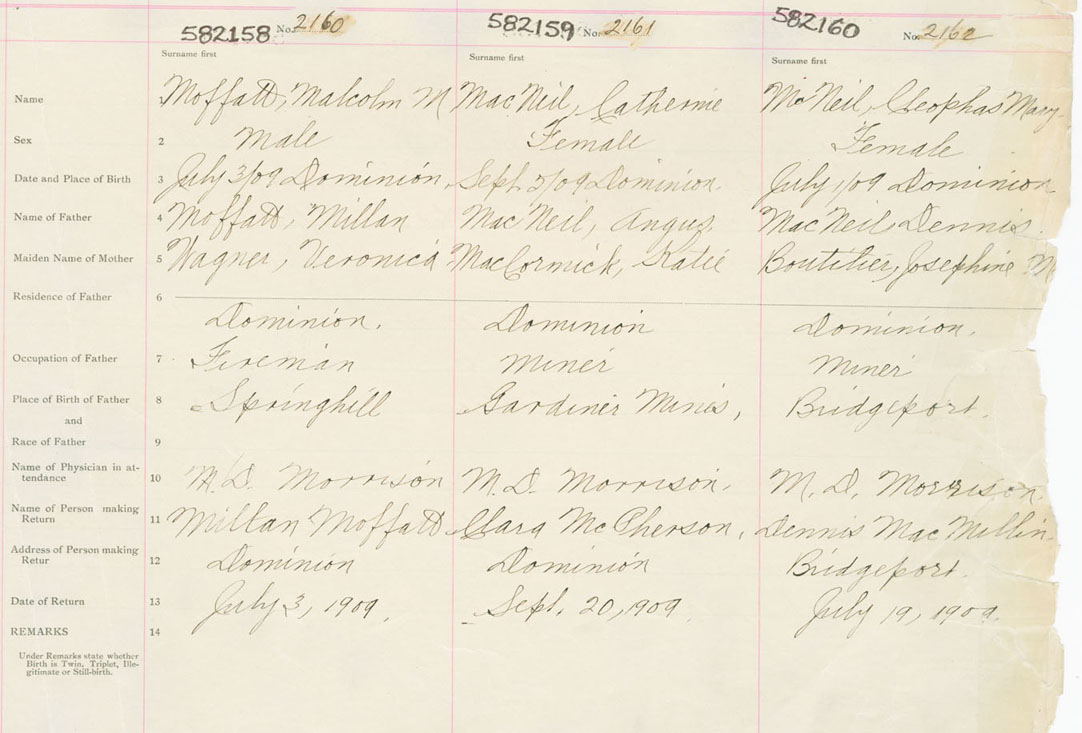 582158 No. 2160 582159 No. 2161 582160 No. 2162
Surname first Surname first Surname first
Name Moffatt, Malcolm M MacNeil, Catherine McNeil, Cleophas Mary
Sex 2 Male Female Female
Date and Place of Birth 3 July 3/09 Dominion, Sept. 5/09 Dominion. July 1/09 Dominion
Name of Father 4 Moffatt, Millan MacNeil, Angus, MacNeil, Dennis.
Maiden Name of Mother 5 Wagner, Veronica MacCormick, Katie Boutilier, Josephine M
Residence of Father 6
Dominion. Dominion Dominion.
Occupation of Father 7 Fireman Miner Miner
Place of Birth of Father 8 Springhill Gardiner Mines, Bridgeport.
and
Race of Father 9
Name of Physician in at-
tendance 10 M.D. Morrison M.D. Morrison. M.D. Morrison.
Name of Person making
Return 11 Millan Moffatt Clara McPherson, Dennis MacMillin.
Address of Person making
Retur 12 Dominion Dominion Bridgeport.
Date of Return 13 July 3, 1909. Sept. 20, 1909. July 19, 1909.
REMARKS 14
Under Remarks state whether
Birth is Twin, Triplet, Ille-
gitimate or Still-birth.